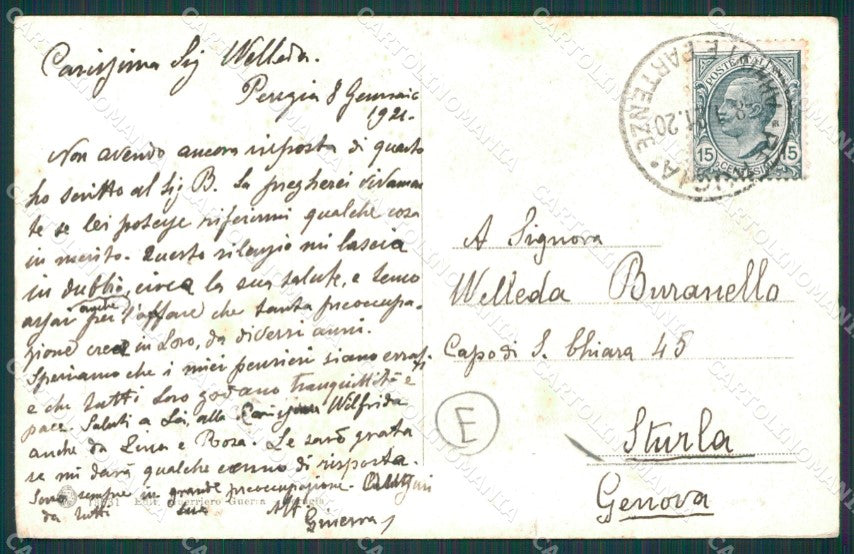 Carissima Sig Welleda.
Perugia 8 Gennaio
1921.
Non avendo ancora risposta di quanto
ho scritto al Sig B. La pregherei vivamen
te se lei potesse riferirmi qualche cosa
in merito. Questo silenzio mi lascia
in dubbio circa la sua salute, e temo
assai anche per l'affare che tanta preoccupa-
zione crea in Loro, da diversi anni.
Speriamo che i miei pensieri siano errati
e che tutti Loro godano tranquillità e
pace. Saluti a Lei, alla Carissima Wilfrida
anche da Lina e Rosa. Le sarò grata
se mi darà qualche cenno di risposta.
Sono sempre in grande preoccupazione. Auguri
da tutti sua Aff
Ginevra
Edit. Guerriero Guerra
POSTE ITALIANE
15 CENTESIMI 15
PERUGIA
ARRIVI E PARTENZE
A Signora
Welleda Buranello
Capo di S. Chiara 45
E
Sturla
Genova
CARTOLINOMANIA